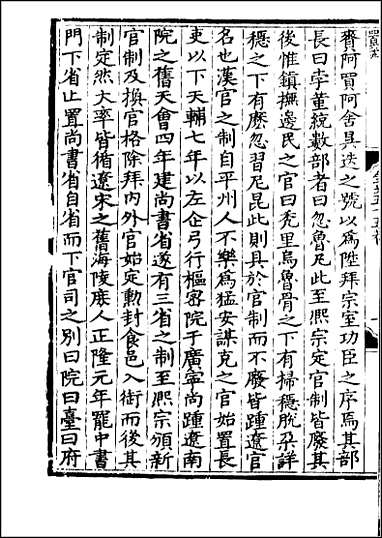 賚阿買阿舍昊迭之號以爲陞拜宗室功臣之序焉其部
長曰孛堇統數部者曰忽魯凡此至熙宗定官制皆廢其
後惟鎮撫邊民之官曰禿里烏魯骨之下有掃穩脫朶詳
穩之下有麽忽習尼昆此則具於官制而不廢皆踵遼官
名也漢官之制自平州人不樂爲猛安謀克之官始置長
吏以下天輔七年以左企弓行樞密院于廣寧尚踵遼南
院之舊天會四年建尚書省遂有三省之制至熙宗頒新
官制及換官格除拜內外官始定勳封食邑入銜而後其
制定然大率皆循遼宋之舊海陵庶人正隆元年罷中書
門下省止置尚書省自省而下官司之別曰院曰臺曰府